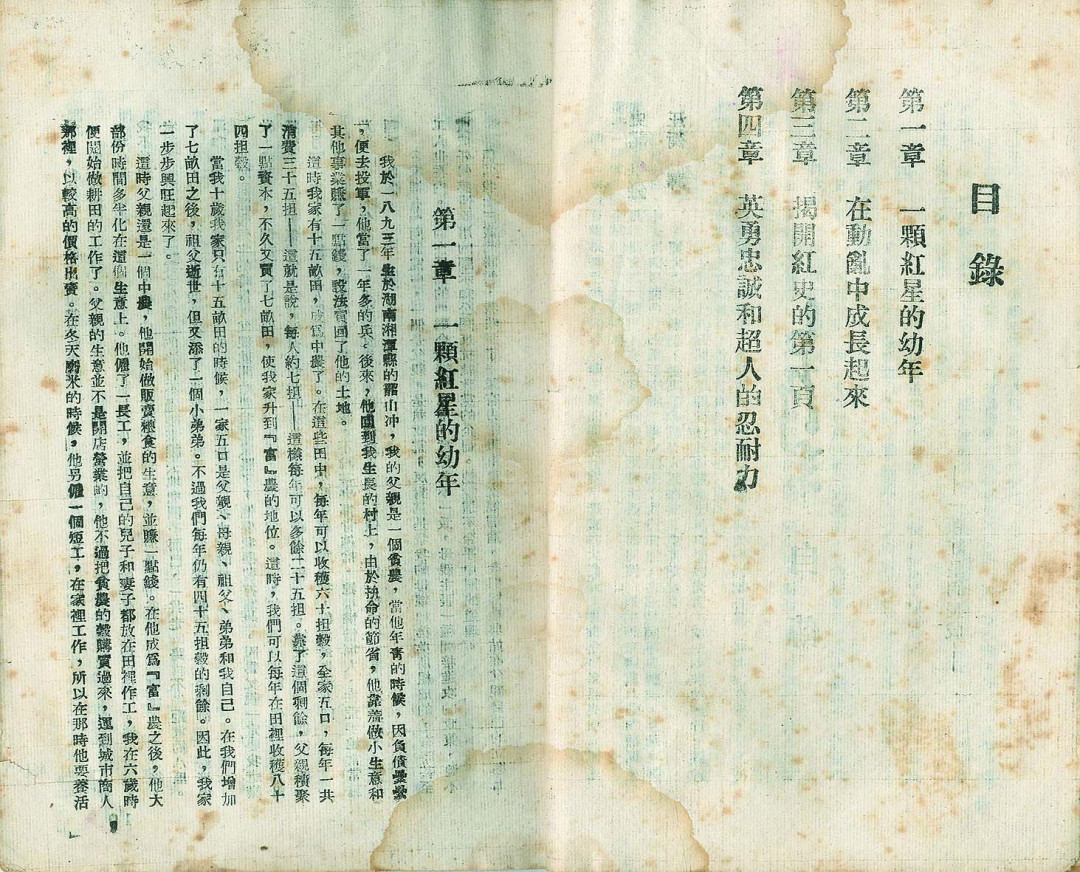 目錄
第一章　一顆紅星的幼年
第二章　在動亂中成長起來
第三章　揭開紅史的第一頁
第四章　英勇忠誠和超人的忍耐力
第一章　一顆紅星的幼年
我於一八九三年生於湖南湘潭縣的韶山冲，我的父親是一個貧農，當他年青的時候，因負債纍纍
，便去投軍，他當了一年多的兵。後來，他回到我生長的村上，由於拚命的節省，他靠着做小生意和
其他事業賺了一點錢，設法買回了他的土地。
這時我家有十五畝田，成為中農了。在這些田中，每年可以收穫六十担穀，全家五口，每年一共
消費三十五担——這就是說，每人約七担——這樣每年可以多餘二十五担。靠了這個剩餘，父親積聚
了一點資本，不久又買了七畝田，使我家升到『富』農的地位。這時，我們可以每年在田裡收穫八十
四担穀。
當我十歲我家只有十五畝田的時候，一家五口是父親、母親、祖父、弟弟和我自己。在我們增加
了七畝田之後，祖父逝世，但又添了一個小弟弟。不過我們每年仍有四十五担穀的剩餘。因此，我家
一步步興旺起來了。
這時父親還是一個中農，他開始做販賣糧食的生意，並賺一點錢。在他成為『富』農之後，他大
部份時間多半化在這個生意上。他僱了一長工，並把自己的兒子和妻子都放在田裡作工，我在六歲時
便開始做耕田的工作了。父親的生意並不是開店營業的，他不過把貧農的穀購買過來，運到城市商人
那裡，以較高的價格出賣。在冬天磨米的時候，他另僱一個短工，在家裡工作，所以在那時他要養活